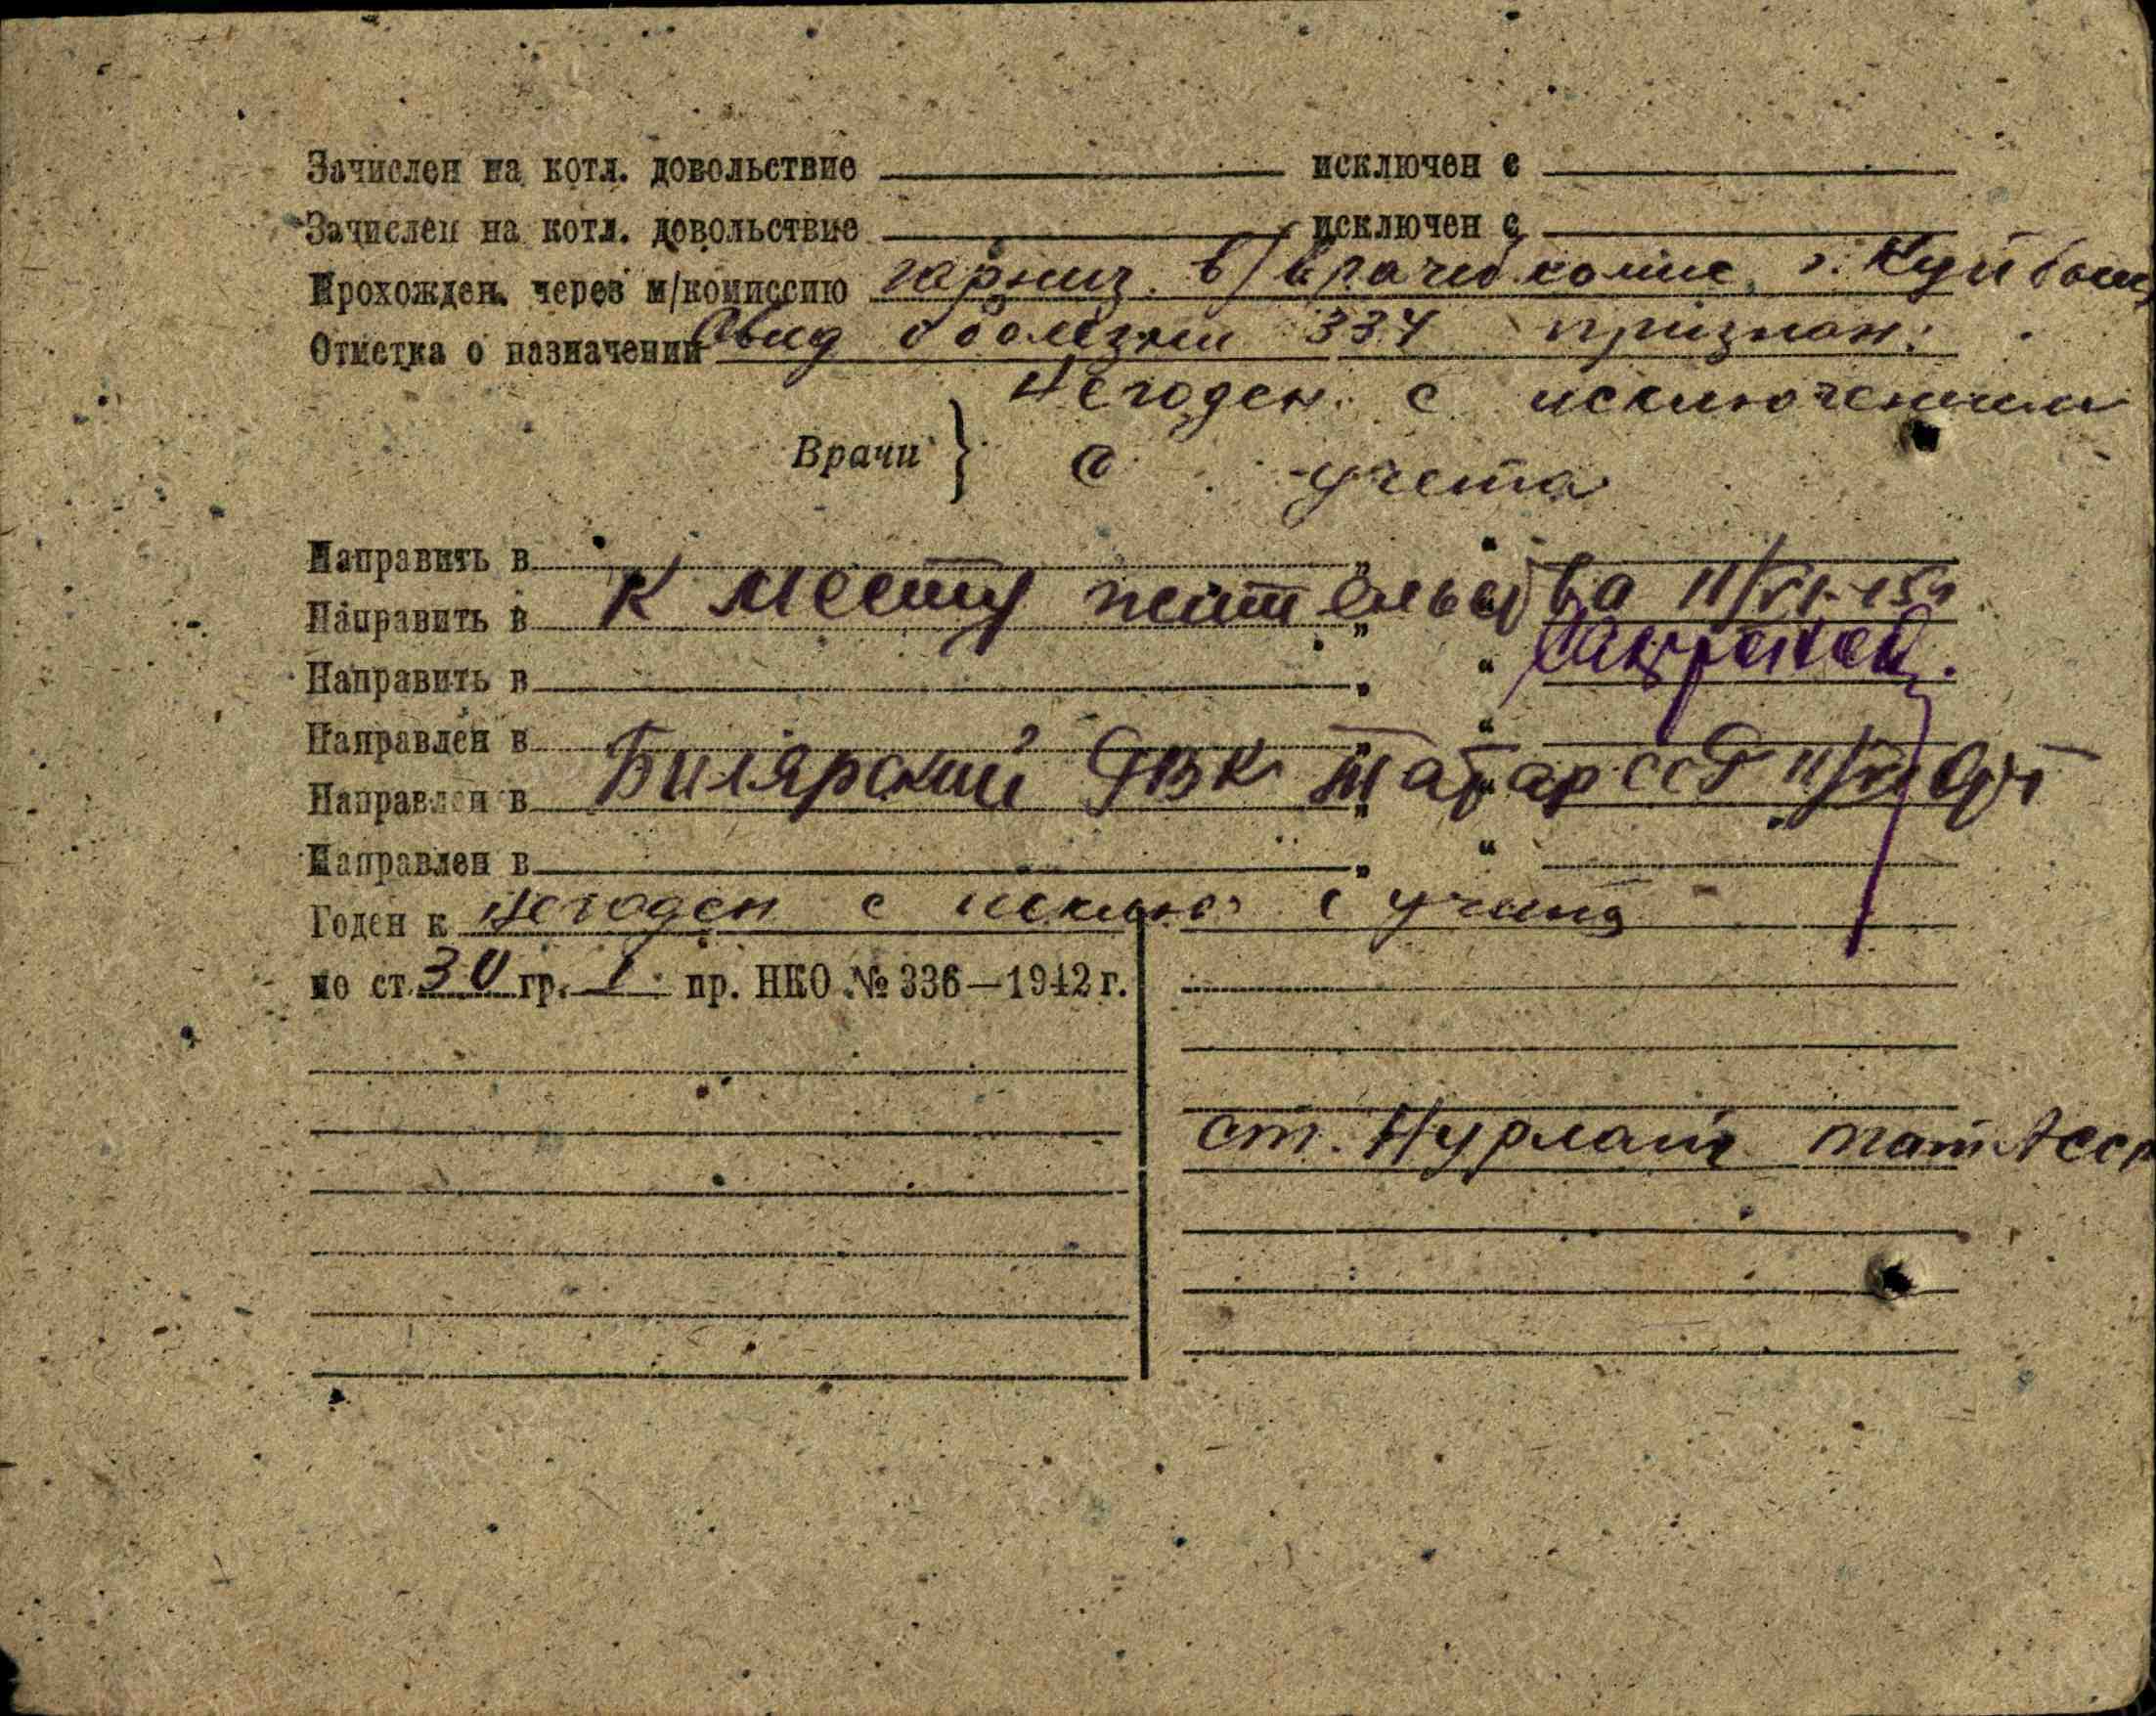 Зачислен на котл. довольствие исключен с
Зачислен на котл. довольствие исключен с
Прохожден. через м/комиссию гарниз. в/врачеб комис. г. Куйбыш
Отметка о назначении Свид о болезни 334 признан:
Негоден с исключением
Врачи } с учета
Направить в „ “
Направить в К месту жительства 11/VI-45
Направить в „ “
Направлен в „ “
Направлен в Билярский РВК Татар ССР 11/VI
Направлен в „ “
Годен к Негоден с исключ с учета
по ст. 30 гр. I пр. НКО № 336—1942 г.
ст. Нурлат тат АССР